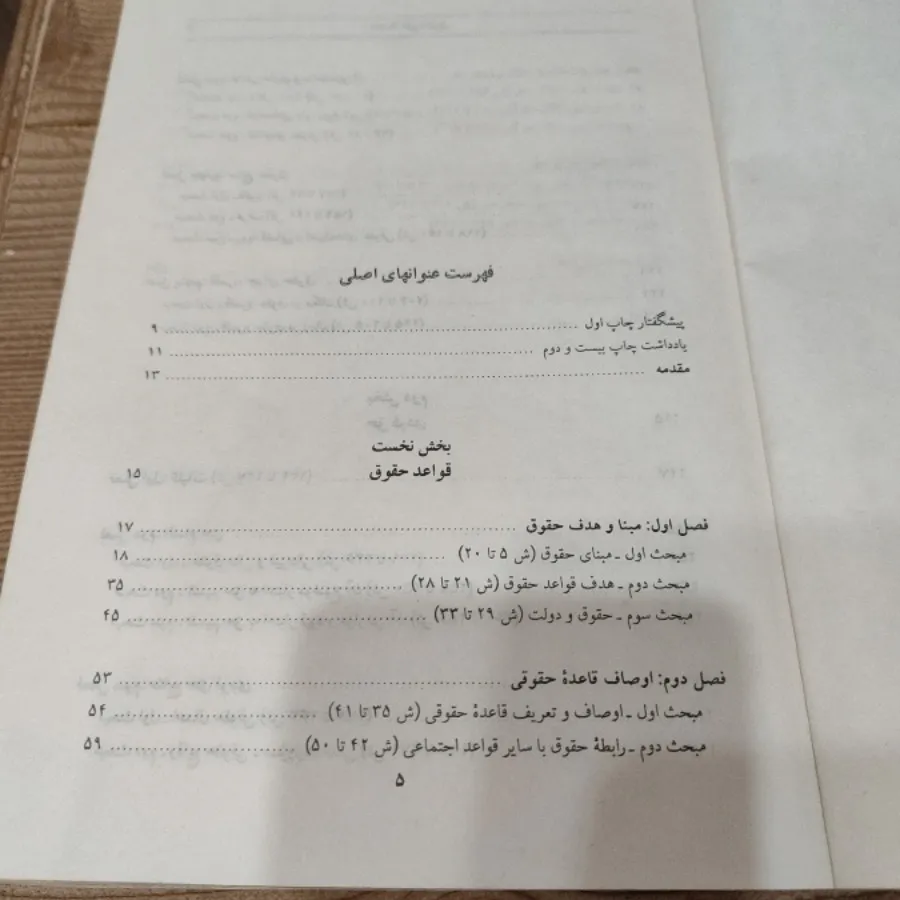 فهرست عنوانهای اصلی
پیشگفتار چاپ اول ........ ۹
یادداشت چاپ بیست و دوم ........ ۱۱
مقدمه ........ ۱۳
بخش نخست
قواعد حقوق ۱۵
فصل اول: مبنا و هدف حقوق ........ ۱۷
مبحث اول ـ مبنای حقوق (ش ۵ تا ۲۰) ........ ۱۸
مبحث دوم ـ هدف قواعد حقوق (ش ۲۱ تا ۲۸) ........ ۳۵
مبحث سوم ـ حقوق و دولت (ش ۲۹ تا ۳۳) ........ ۴۵
فصل دوم: اوصاف قاعدهٔ حقوقی ........ ۵۳
مبحث اول ـ اوصاف و تعریف قاعدهٔ حقوقی (ش ۳۵ تا ۴۱) ........ ۵۴
مبحث دوم ـ رابطهٔ حقوق با سایر قواعد اجتماعی (ش ۴۲ تا ۵۰) ........ ۵۹
۵